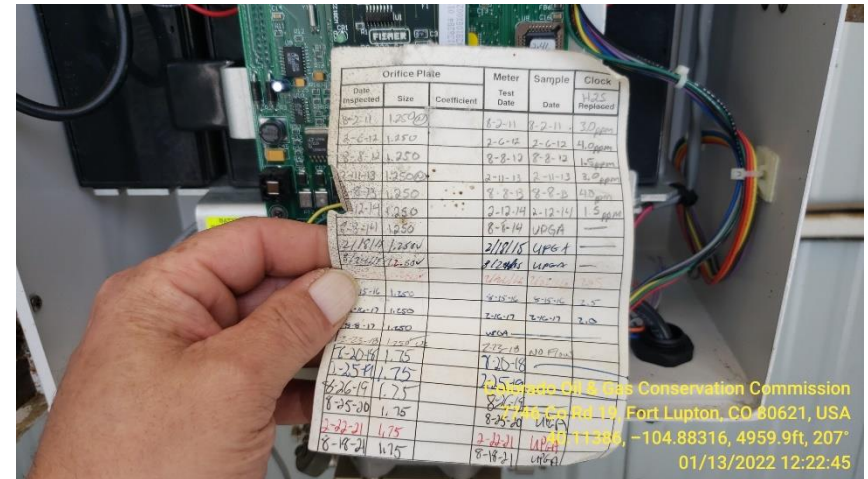 FISHER
Orifice Plate Meter Sample Clock
Date Inspected Size Coefficient Test Date Date H2S Replaced
8-2-11 1.250 8-2-11 8-2-11 3.0ppm
2-6-12 1.250 2-6-12 2-6-12 4.0ppm
8-8-12 1.250 8-8-12 8-8-12 1.5ppm
2-11-13 1.250 2-11-13 2-11-13
1.250 8-8-13 8-8-13
12-14 1.250 2-12-14 2-12-14 1.5ppm
1.250 8-8-14 UPGA —
2/18/15 1.250 2/18/15 UPGA —
UPGA —
15-16 1.250 8-15-16 8-15-16 2.5
1.250 2-16-17 2-16-17 2.0
8-17 1.250 UPGA
NO Flow
7-20-18 1.75 7-20-18
1-25-19 1.75
8-26-19 1.75 8-26-19
8-25-20 1.75 8-25-20 UPGA
2-22-21 1.75 2-22-21 UPGA
8-18-21 1.75 8-18-21 UPGA
Colorado Oil & Gas Conservation Commission
7746 Co Rd 19, Fort Lupton, CO 80621, USA
40.11386, -104.88316, 4959.9ft, 207°
01/13/2022 12:22:45